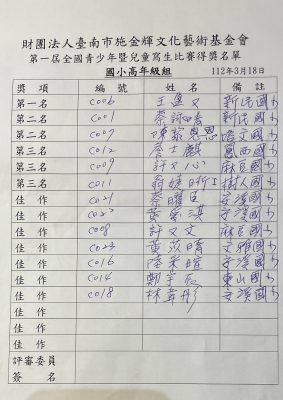 財團法人臺南市施金輝文化藝術基金會
第一屆全國青少年暨兒童寫生比賽得獎名單
國小高年級組 112年3月18日
獎項 編號 姓名 備註
第一名 C006 王 又 新民國小
第二名 C001 蔡 新民國小
第二名 C007 陳 恩 文國小
第三名 C012 詹士麒 西國小
第三名 C009 許又心 麻豆國小
第三名 C011 樹人國小
佳作 C021 蔡 臣 安溪國小
佳作 黃 淇 安溪國小
佳作 C008 許又文 麻豆國小
佳作 C023 黃 晴 文雅國小
佳作 C016 陸 安溪國小
佳作 C014 鄭宇 東山國小
佳作 C018 林 彤 安溪國小
佳作
佳作
佳作
評審委員
簽名